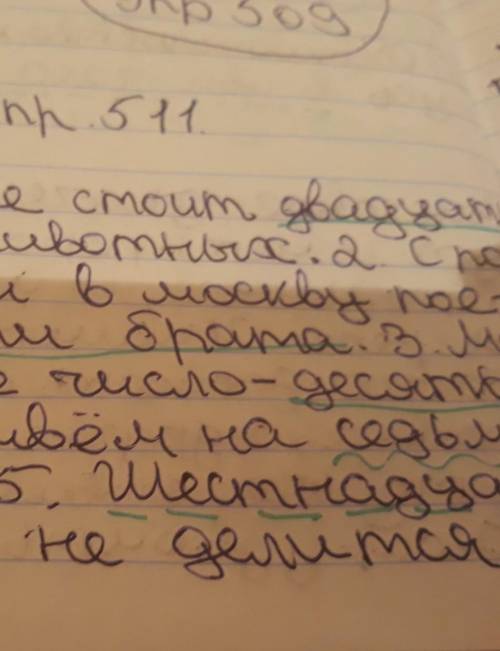 упр 509
упр. 511.
е стоит двадцат
ивотных. 2. С по
й в москву пое-
ии брата. 3. М
е число-десять
ивём на седьм
5. Шестнадца
не делится